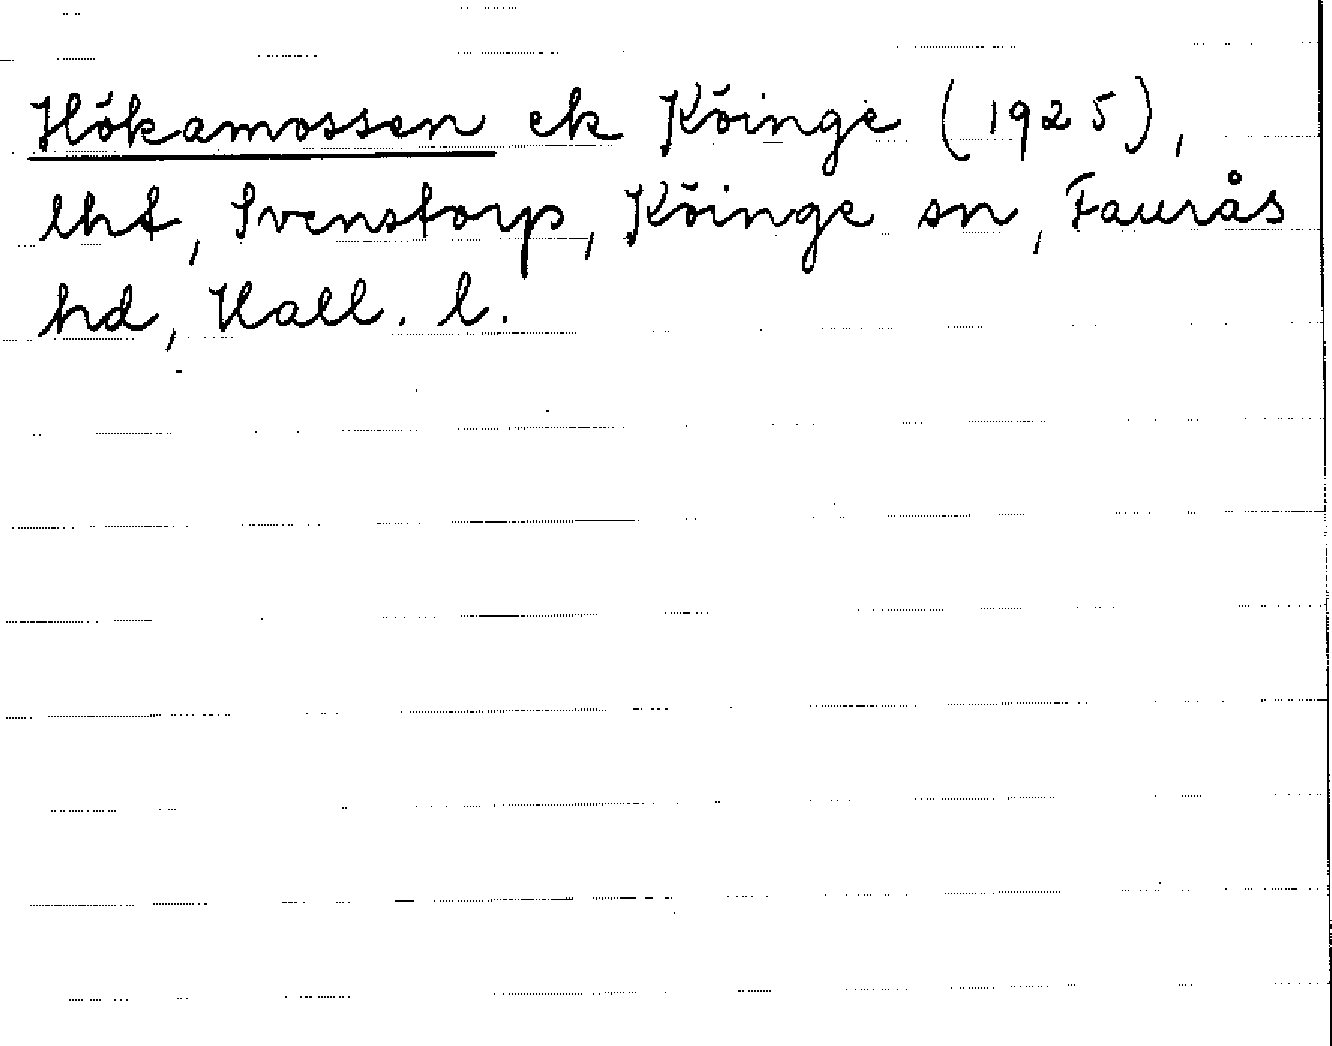 Hökamossen ek Köinge (1925),
lht, Svenstorp, Köinge sn, Faurås
hd, Hall. l.